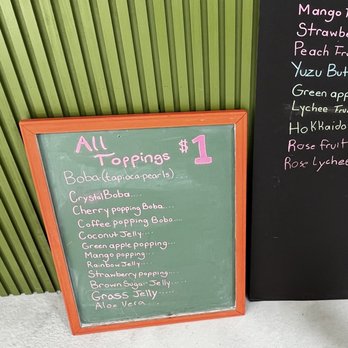 All
Toppings $1
Boba (tapioca pearls)...
Crystal Boba....
Cherry popping Boba....
Coffee popping Boba....
Coconut Jelly....
Green apple popping...
Mango popping....
Rainbow Jelly....
Strawberry popping....
Brown Sugar Jelly....
Grass Jelly....
Aloe Vera....
Mango
Strawbe
Peach Fr
Yuzu But
Green app
Lychee
Hokkaido
Rose fruit
Rose Lychee